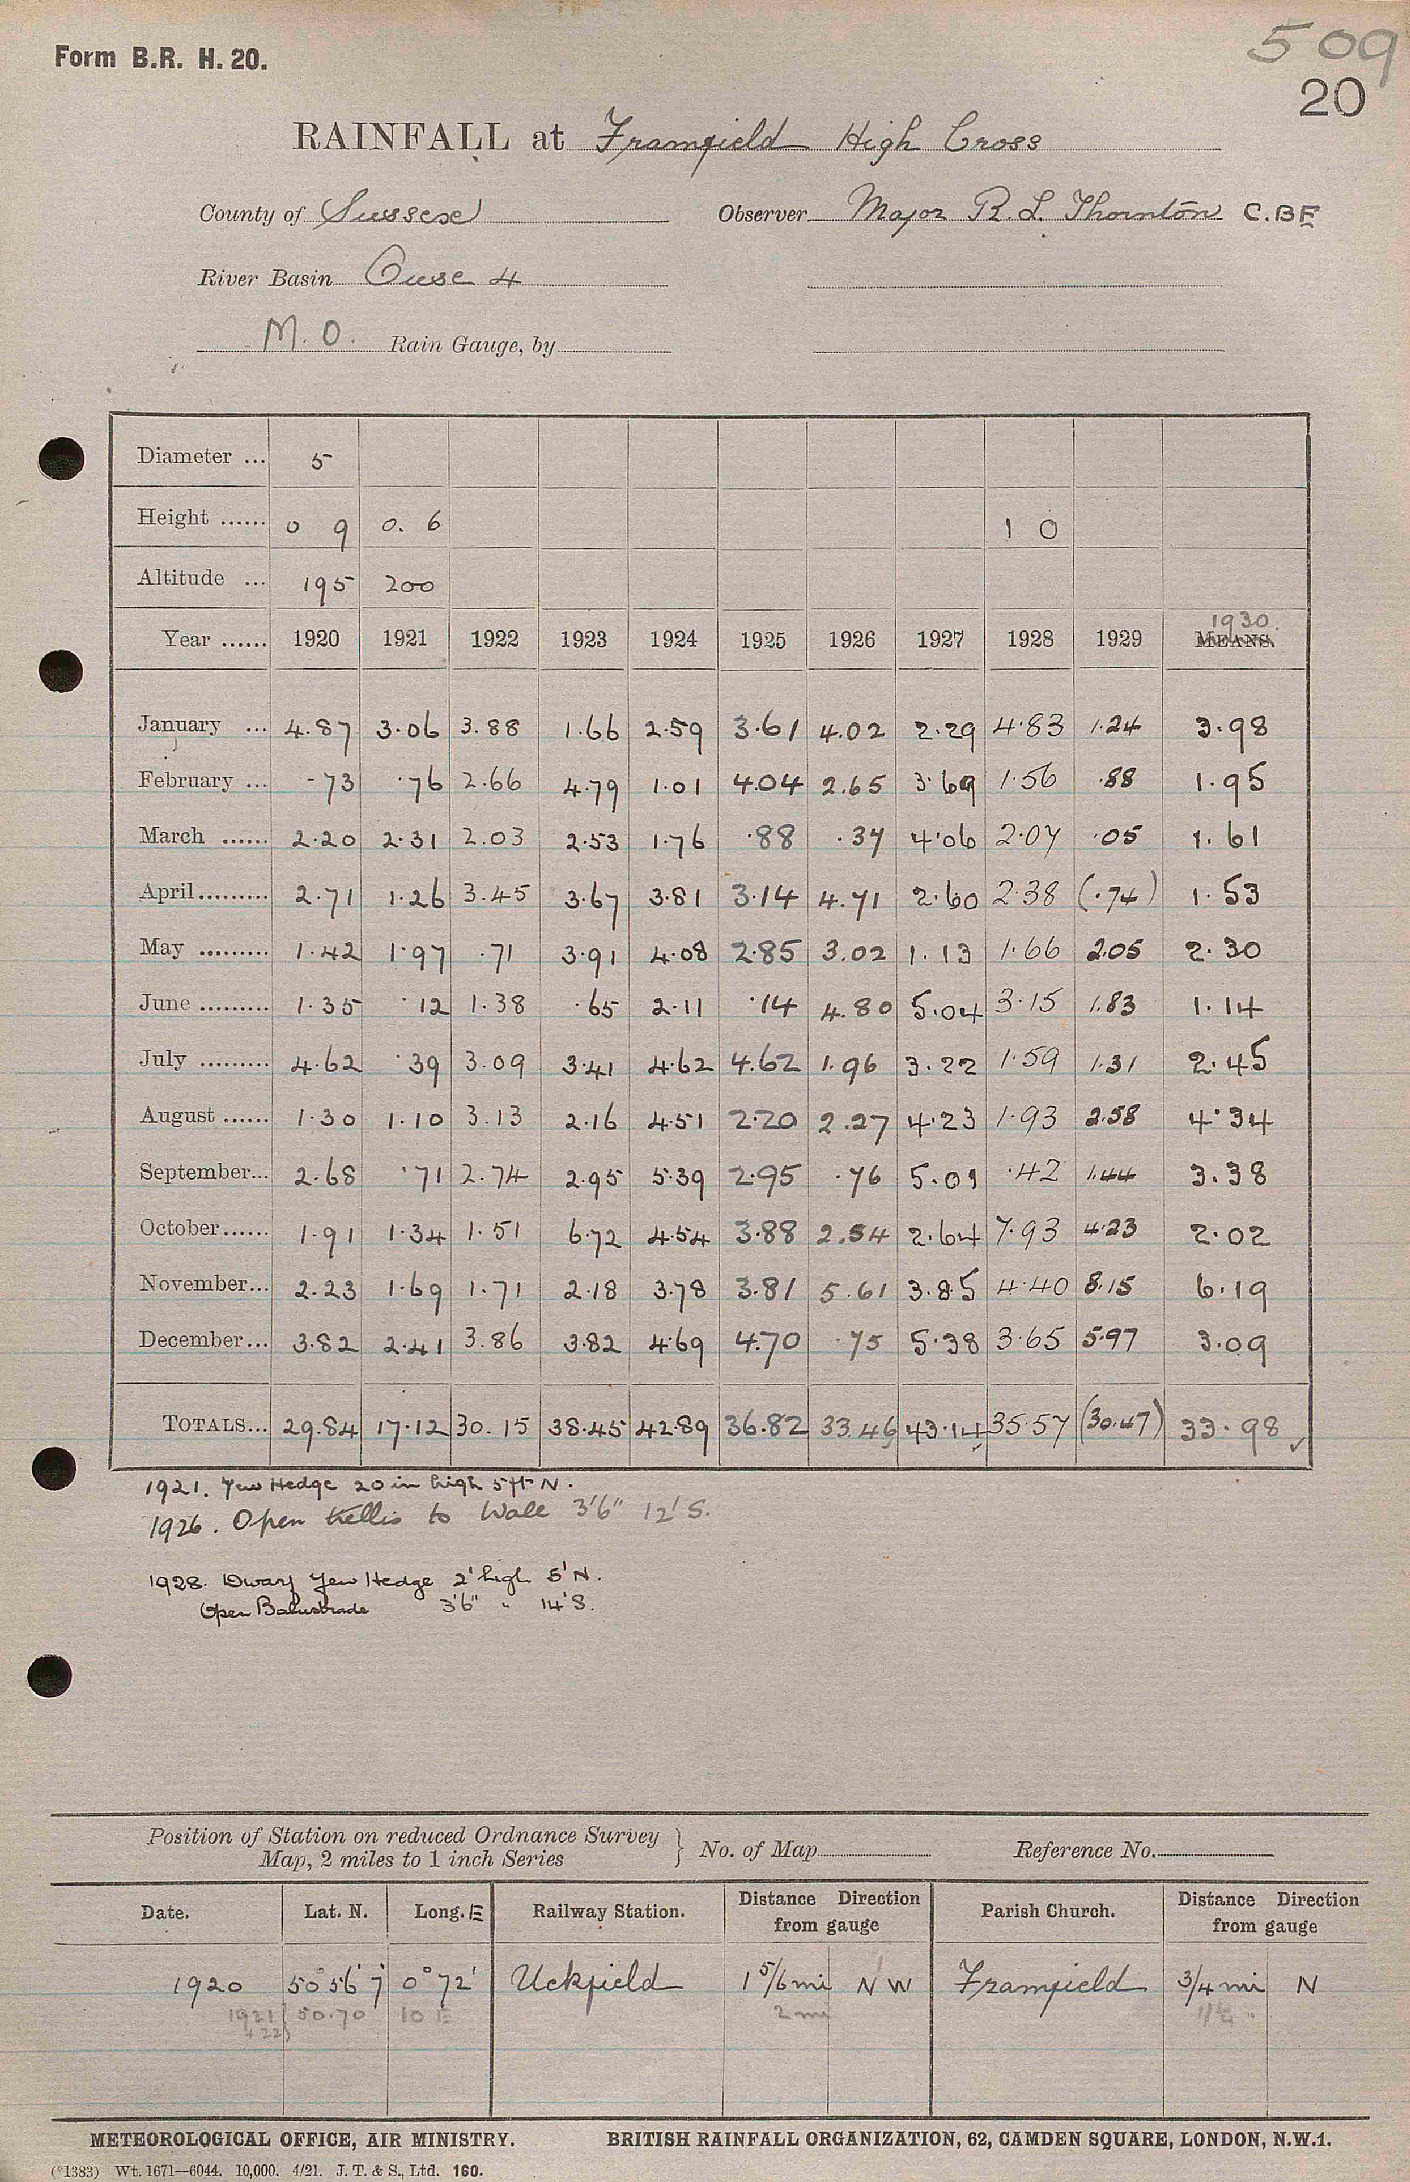 Form B.R. H. 20.
509
20
RAINFALL at Framfield High Cross
County of Sussex Observer Major R L Thornton C.BE
River Basin Ouse 4
M.O. Rain Gauge, by
Diameter ... 5
Height ...... 0 9 0. 6 1 0
Altitude ... 195 200
1930.
Year ...... 1920 1921 1922 1923 1924 1925 1926 1927 1928 1929 MEANS.
January ... 4.87 3.06 3.88 1.66 2.59 3.61 4.02 2.29 4.83 1.24 3.98
February ... .73 .76 2.66 4.79 1.01 4.04 2.65 3.69 1.56 .88 1.95
March ...... 2.20 2.31 2.03 2.53 1.76 .88 .37 4.06 2.07 .05 1.61
April ......... 2.71 1.26 3.45 3.67 3.81 3.14 4.71 2.60 2.38 (.74) 1.53
May ......... 1.42 1.97 .71 3.91 4.08 2.85 3.02 1.13 1.66 2.05 2.30
June ......... 1.35 .12 1.38 .65 2.11 .14 4.80 5.04 3.15 1.83 1.14
July ......... 4.62 .39 3.09 3.41 4.62 4.62 1.96 3.22 1.59 1.31 2.45
August ...... 1.30 1.10 3.13 2.16 4.51 2.20 2.27 4.23 1.93 2.58 4.34
September... 2.68 .71 2.74 2.95 5.39 2.95 .76 5.01 .42 1.44 3.38
October...... 1.91 1.34 1.51 6.72 4.54 3.88 2.54 2.64 7.93 4.23 2.02
November... 2.23 1.69 1.71 2.18 3.78 3.81 5.61 3.85 4.40 8.15 6.19
December... 3.82 2.41 3.86 3.82 4.69 4.70 .75 5.38 3.65 5.97 3.09
TOTALS... 29.84 17.12 30.15 38.45 42.89 36.82 33.46 43.14 35.57 (30.47) 33.98 ✓
1921. Yew Hedge 20 in high 5 ft N.
1926. Open trellis to Wall 3'6" 12' S.
1928. Dwarf Yew Hedge 2' high 5' N.
Open Balustrade 3'6" " 14' S.
Position of Station on reduced Ordnance Survey
Map, 2 miles to 1 inch Series } No. of Map Reference No.
Date. Lat. N. Long. E Railway Station. Distance Direction from gauge Parish Church. Distance Direction from gauge
1920 50°56'7 0°72' Uckfield 1 5/6 mi N W Framfield 3/4 mi N
1921 50.70 10 E 2 mi 1 1/4 "
& 22)
METEOROLOGICAL OFFICE, AIR MINISTRY. BRITISH RAINFALL ORGANIZATION, 62, CAMDEN SQUARE, LONDON, N.W.1.
(*1383) Wt. 1671—6044. 10,000. 4/21. J. T. & S., Ltd. 160.